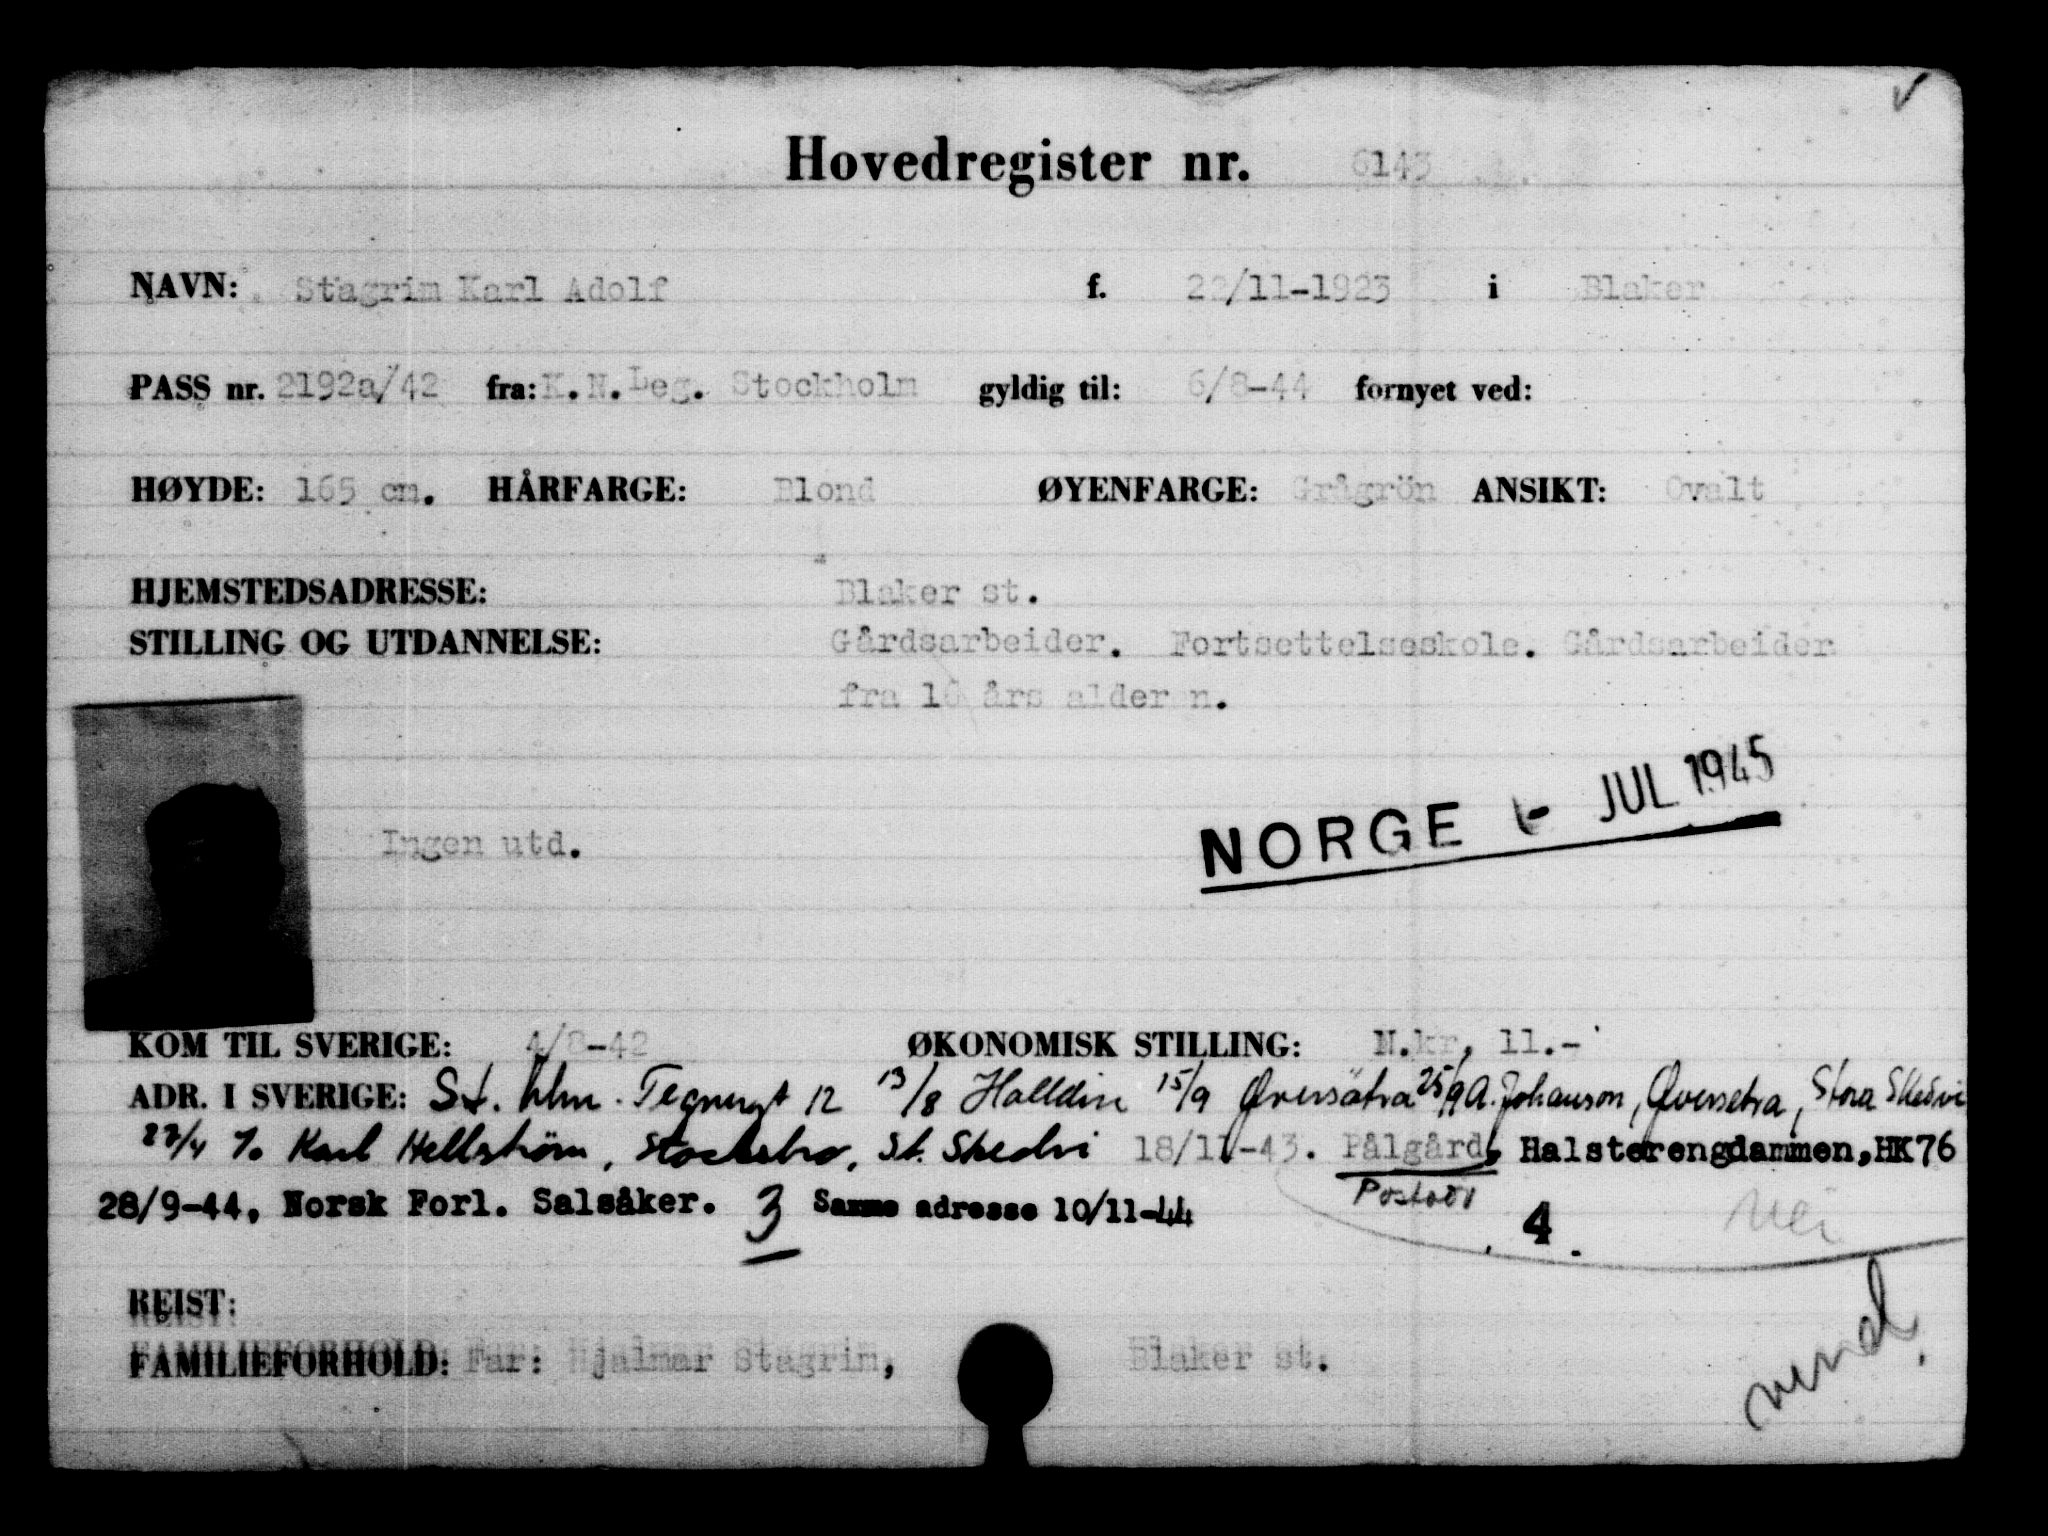 Hovedregister nr. 6143
NAVN: Stagrim Karl Adolf f. 22/11-1923 i Blaker
PASS nr. 2192a/42 fra: K.N.Leg. Stockholm gyldig til: 6/8-44 fornyet ved:
HØYDE: 165 cm. HÅRFARGE: Blond ØYENFARGE: Grågrön ANSIKT: Ovalt
HJEMSTEDSADRESSE: Blaker st.
STILLING OG UTDANNELSE: Gårdsarbeider. Fortsettelseskole. Gårdsarbeider
fra 10 års alder n.
NORGE - JUL 1945
Ingen utd.
KOM TIL SVERIGE: 4/8-42 ØKONOMISK STILLING: N.kr, 11.-
ADR. I SVERIGE: St. hlm. Tegnergt 12 13/8 Halldin 15/9 Øversätra 25/9 A. Johanson, Øversetra, Stora Skedvi
% Karl Hellström, St. Skedvi 18/11-43. Pålgård, Halsterengdammen, HK76
Postadr
28/9-44, Norsk Forl. Salsåker. 3 Samme adresse 10/11-44 4. Nei
REIST:
FAMILIEFORHOLD: Far: Hjalmar Stagrim, Blaker st.
vend.